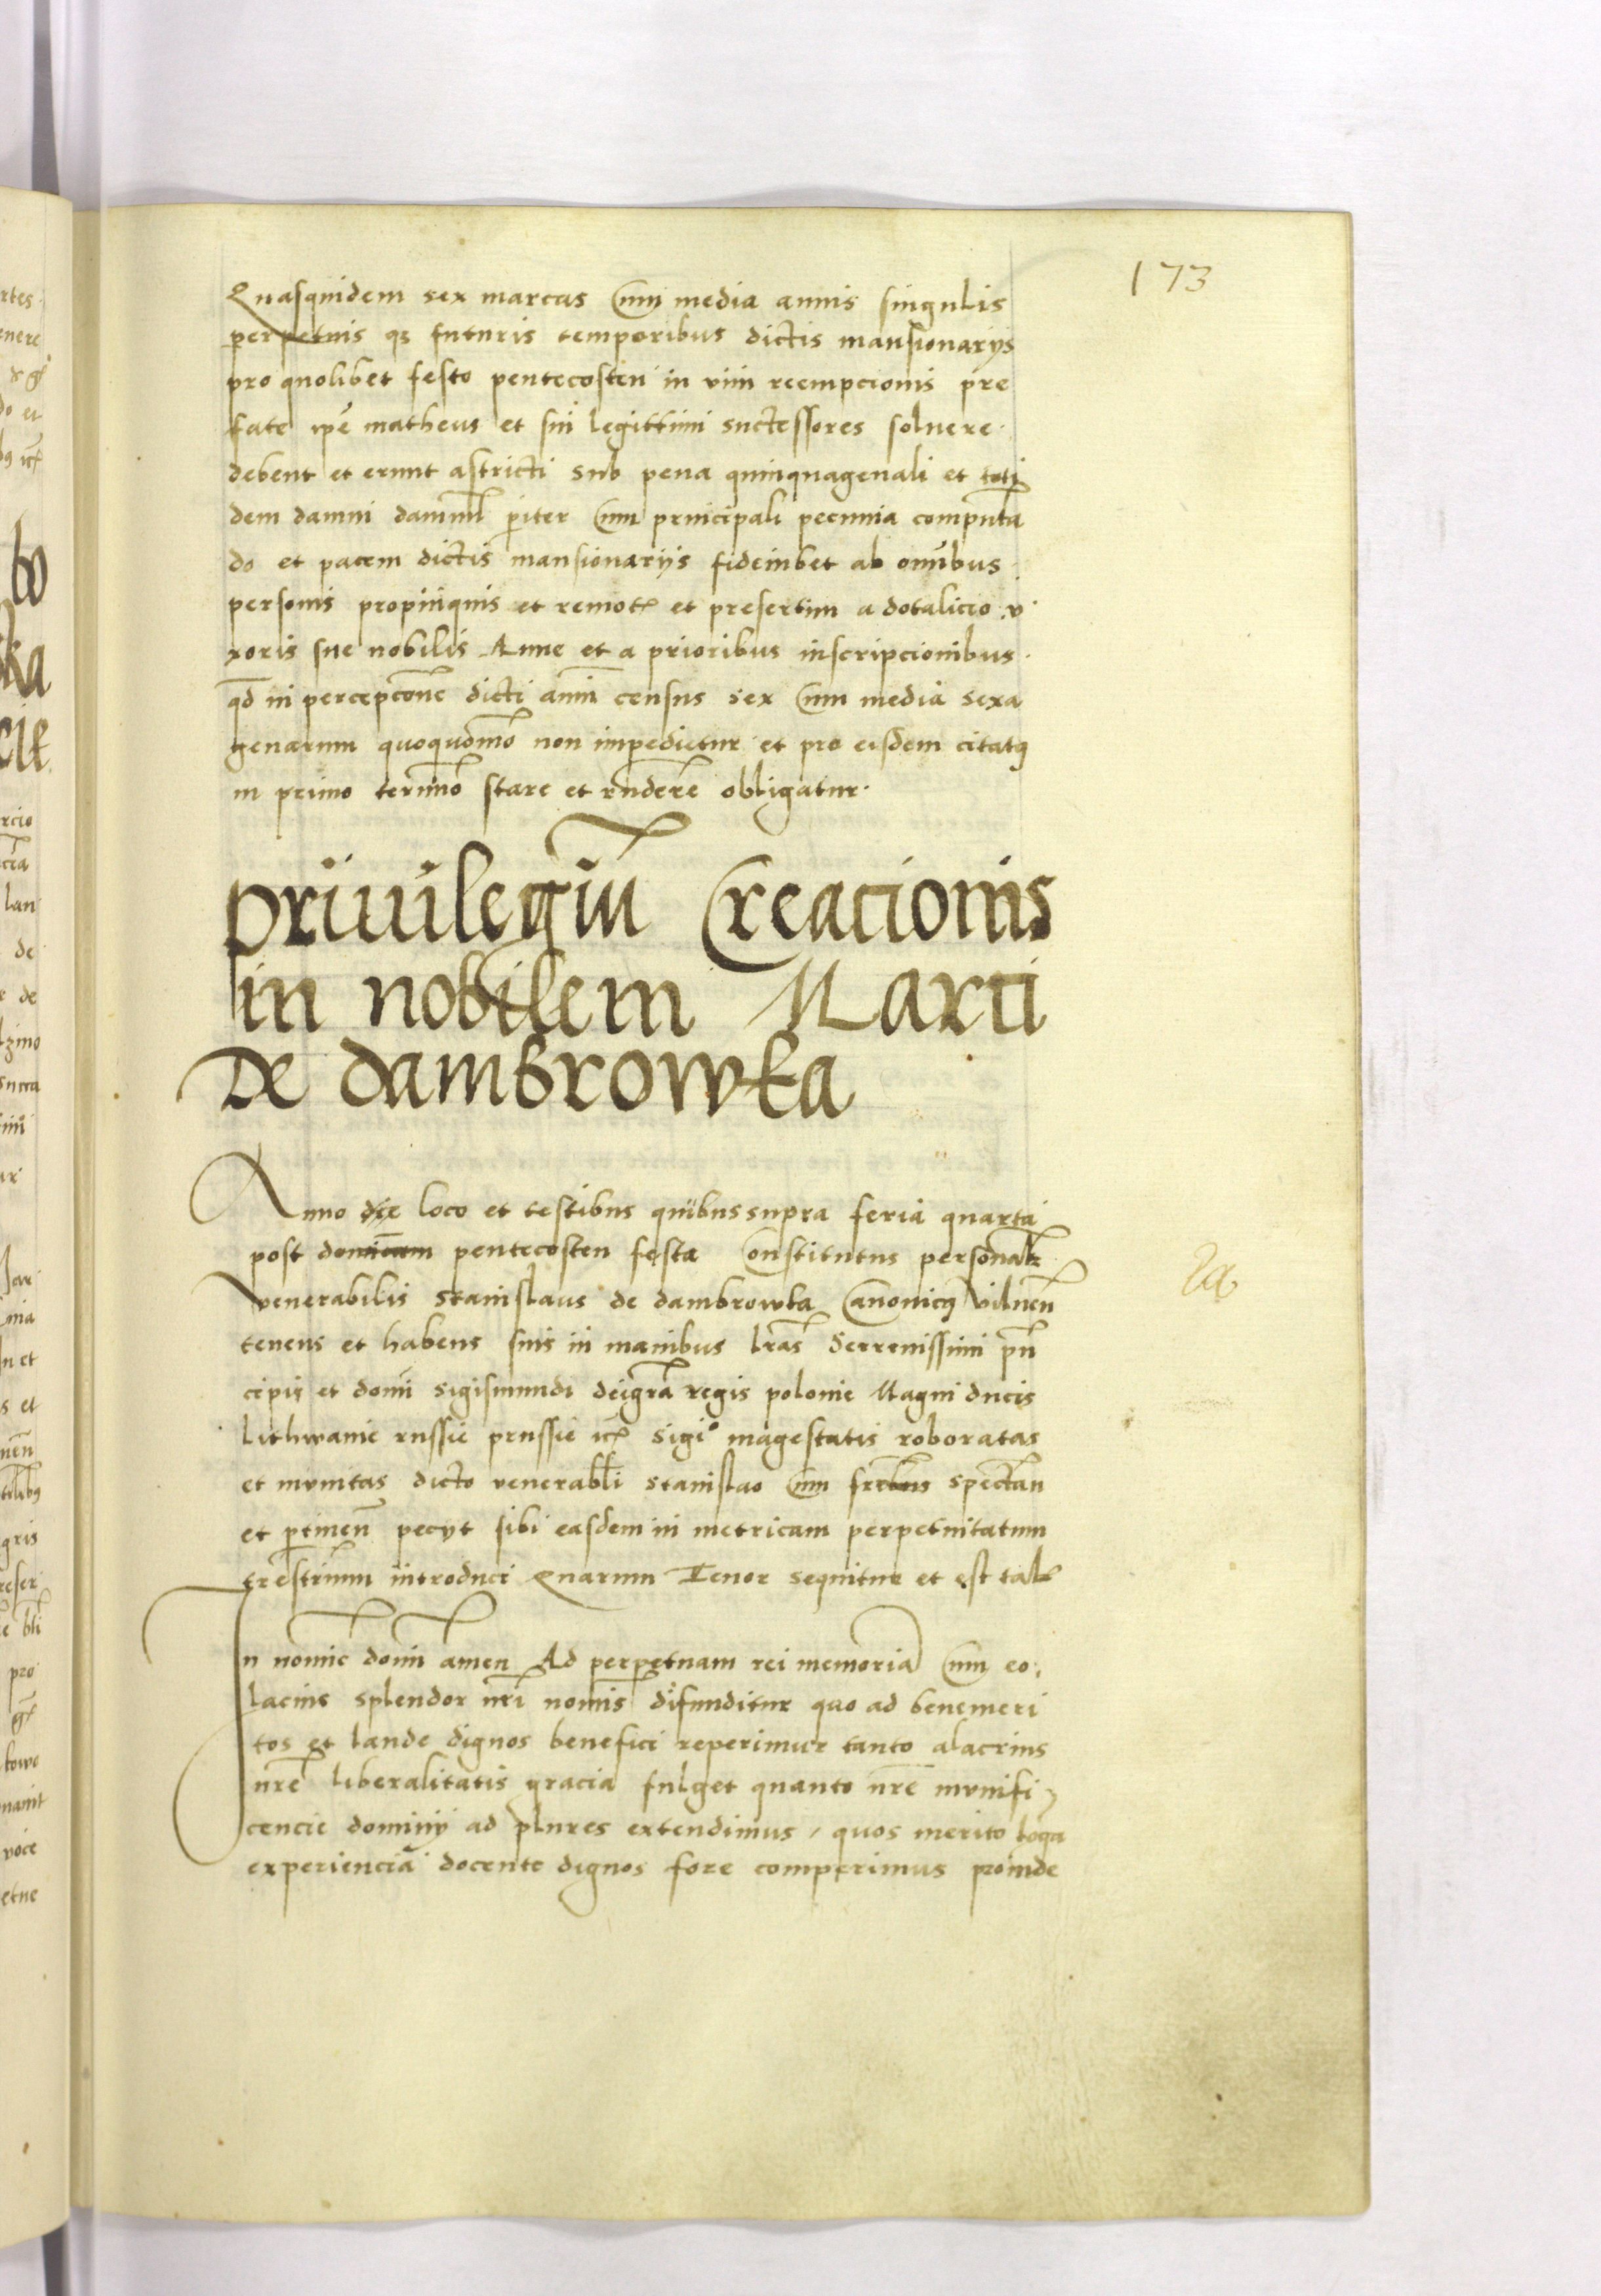 173
Quasquidem sex marcas Cum media annis singulis
perpetuis qꝫ futuris temporibus dictis mansionarys
pro quolibet festo pentecosten in vim reempcionis pre
fate ipē matheus et sui legittimi suctessores soluere
debent et erunt astricti sub pena quinquagenali et toti
dem damni damnū piter Cum principali pecunia computa
do et pacem dictis mansionarys fideiubet ab omībus
personis propinquis et remotꝭ et presertim a dotalicio v
xoris sue nobilis Anne et a prioribus inscripcionibus
qd in percepcōne dicti annī census sex Cum media sexa
genarum quoquomō non impedietur et pro eisdem citatꝯ
in primo termīo stare et rndere obligatur
privilegiū Creacionis
in nobilem Marti
De dambrowka
Anno die loco et testibus quibus supra feria quarta
post dominicam pentecosten festa Constitutus personalr
venerabilis Stanislaus de dambrowka Canonicꝯ vilnen
tenens et habens suis in manibus lras Serrenissimi prin
cipis et domi Sigismundi deigra regis polonie Magni ducis
Lithwanie russie prussie ꝛcꝭ Sigiº magestatis roboratas
et mvnitas dicto venerabli stanislao Cum frībus spectan
et ptinen pecyt sibi easdem in metricam perpetuitatum
trestrium introduci Quarum Tenor sequitur et est talꝭ
In nomīe domī amen Ad perpetuam rei memoria Cum eo
lacius splendor nrī nomīs difunditur quo ad benemeri
tos et laude dignos benefici reperimur tanto alacrius
nrē liberalitatis gracia fulget quanto nrē mvnifi
cencie dominy ad plures extendimus, quos merito loga
experienciā docente dignos fore comperimus proinde